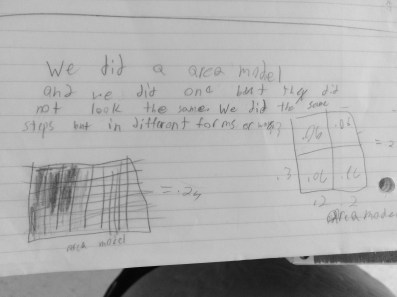 We did a area model
and we did one but they did
not look the same we did the same
steps but in different forms or ways
.06
.06
= .24
.3
.06
.06
.2
.2
area model
area model